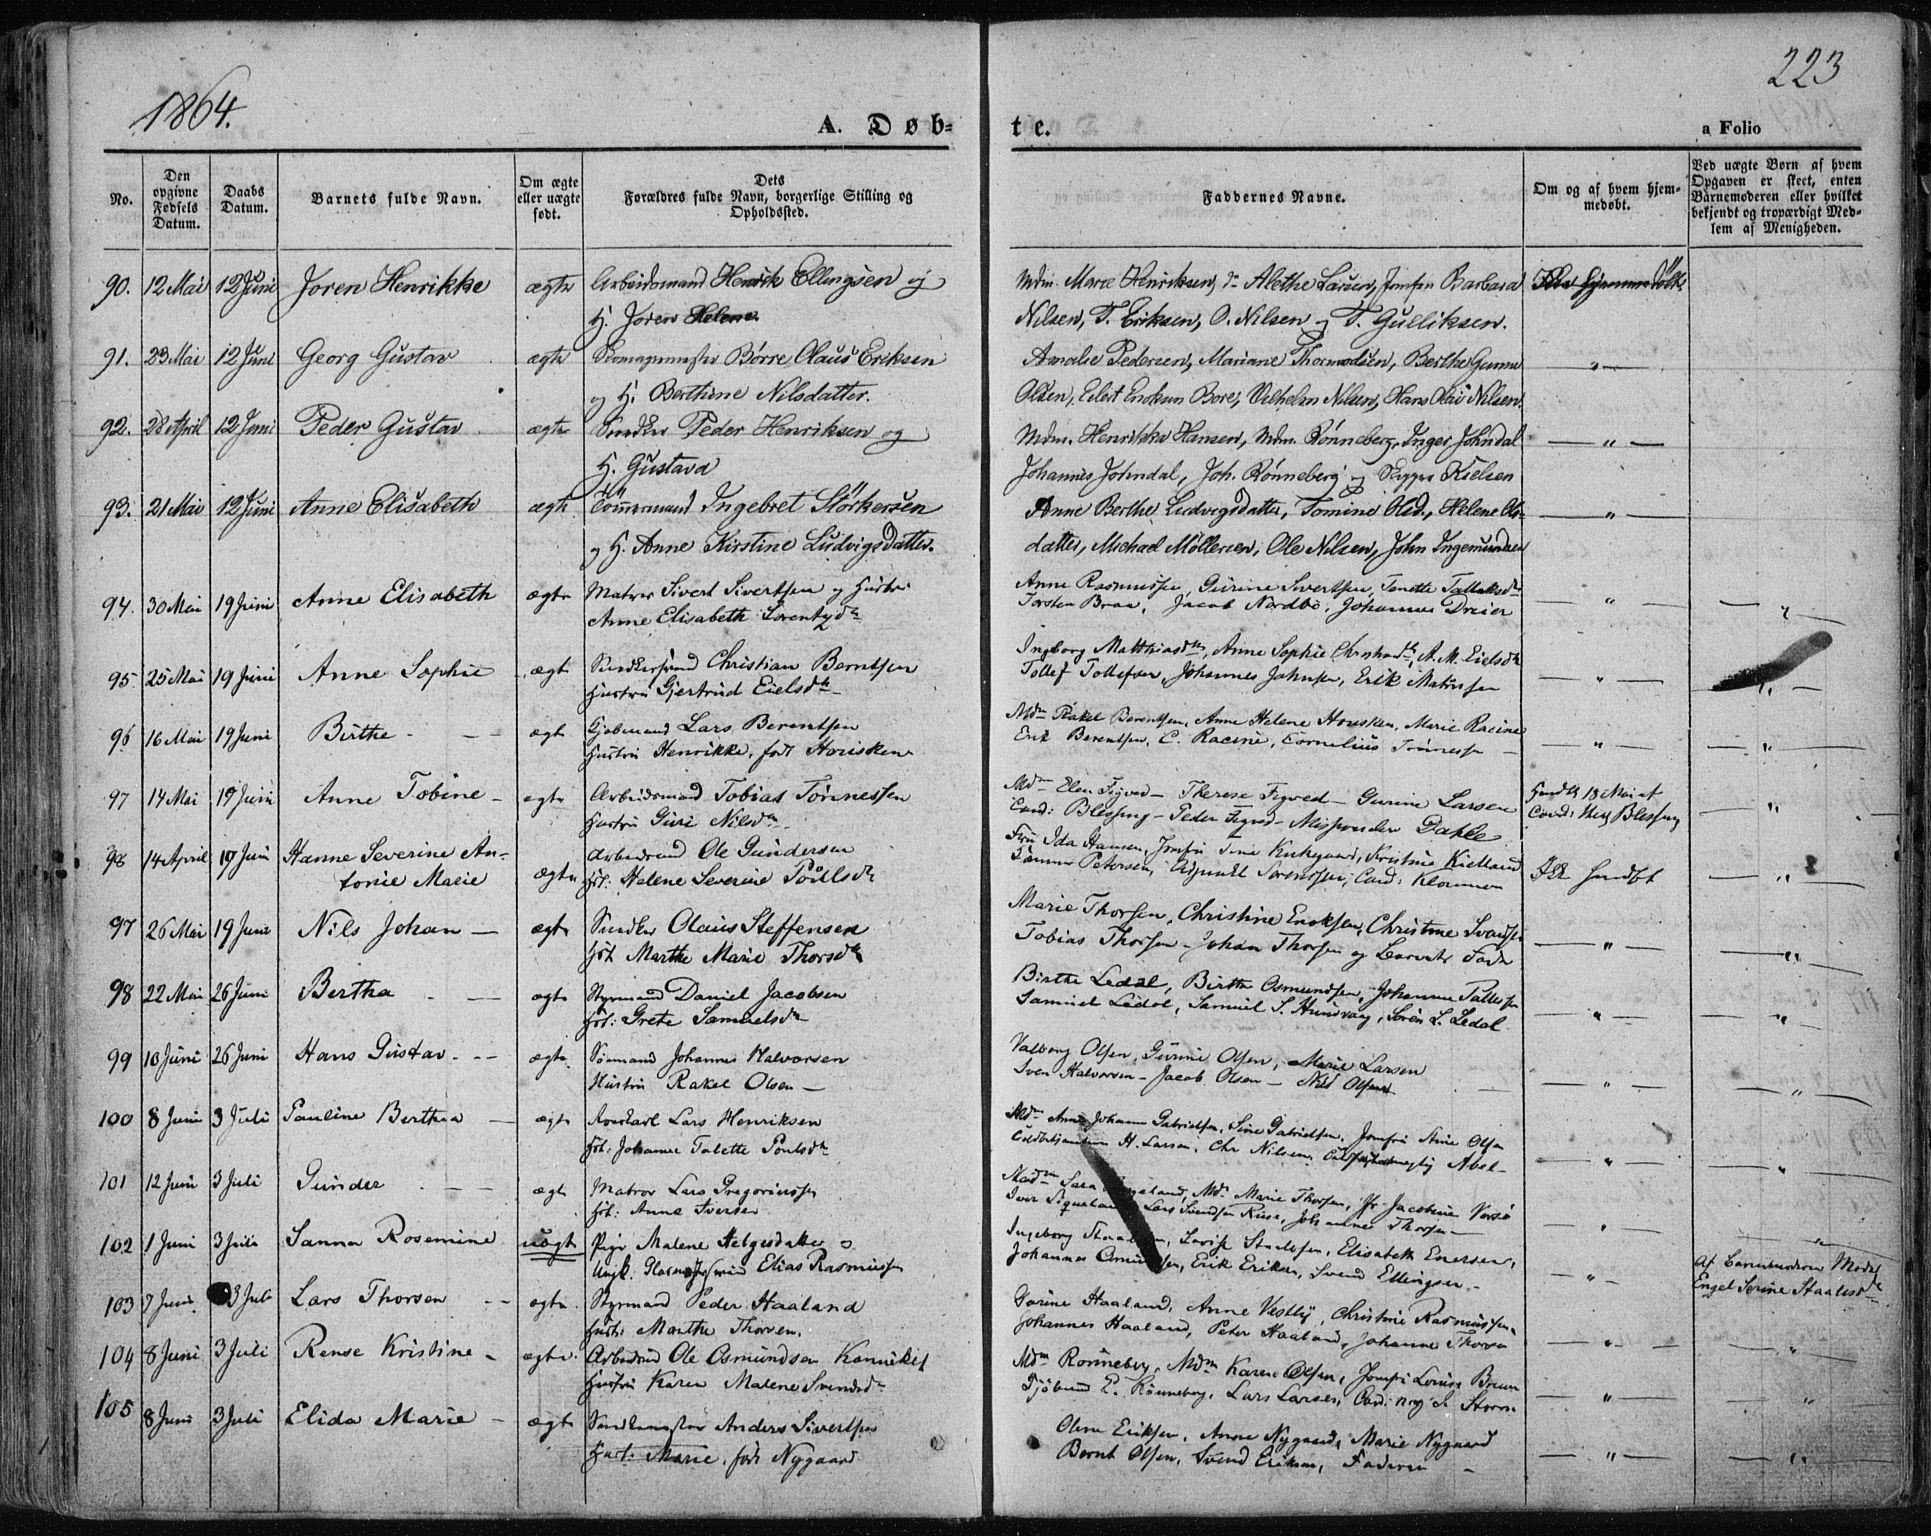 1864.
223
A. Døb-
te.
a Folio
No.
Den opgivne Fødsels Datum.
Daabs Datum.
Barnets fulde Navn.
Om ægte eller uægte født.
Dets Forældres fulde Navn, borgerlige Stilling og Opholdssted.
Faddernes Navne.
Om og af hvem hjemmedøbt.
Ved uægte Børn af hvem Opgaven er skeet, enten Barnemoderen eller hvilket bekjendt og troværdigt Medlem af Menigheden.
90. 12 Mai 12 Juni Joren Henrikke ægte Arbeidsmand Henrik Ellingsen og
H. Joren Helene
Mdm. Marie Henriksen, Alethe Larsen, Jomfru Barbara
Nilsen, T. Eriksen, O. Nilsen og T. Gulliksen.
91. 23 Mai 12 Juni Georg Gustav ægte Skomagermester Børre Olaus Eriksen
og H. Berthine Nilsdatter.
Amalie Pedersen, Mariane Thormodsen, Berthe Gunne
Olsen, Eilert Eriksen Bore, Vilhelm Nilsen, Hans Olai Nilsen.
92. 28 April 12 Juni Peder Gustav ægte Snedker Peder Henriksen og
H. Gustava
Mdm. Henrikke Hansen, Mdm. Rønneberg, Inger Johndal
Johannes Johndal, Joh. Rønneberg og Skipper Kielsen
93. 21 Mai 12 Juni Anne Elisabeth ægte Tømmermand Ingebret Størkersen
og H. Anne Kirstine Ludvigsdatter.
Anne Berthe Ludvigsdatter, Tomine Olsd., Helene Ols-
datter, Michael Möllersen, Ole Nilsen, John Ingemundsen
94. 30 Mai 19 Juni Anne Elisabeth ægte Matros Sivert Sivertsen og Hustru
Anne Elisabeth Lorentzdr
Anne Rasmussen, Gurine Sivertsen, Tenette Tallaksdr
Torsten Braa, Jacob Nordbø, Johannes Dreier
95 25 Mai 19 Juni Anne Sophie ægte Snedkersvend Christian Berntsen
Hustru Gjertrud Eielsdr
Ingeborg Matthiasdtr, Anne Sophie Christiansdr, A. M. Eielsdr
Tollef Tollefsen, Johannes Johnsen, Erik Mathisen
96 16 Mai 19 Juni Birthe ægte Gjøbmand Lars Berentsen
Hustru Henrikke, født Housken
Mdm Rakel Berentsen, Anne Helene Housken, Marie Racine
Erik Berentsen, C. Racine, Cornelius Tønnessen
97 14 Mai 19 Juni Anne Tobine ægte Arbeidsmand Tobias Tönnessen
Hustru Guri Nilsdr
Mdm Elen Figved - Therese Figved - Gurine Larsen
Cand: Blessing - Peder Figved - Missionær Dahle
Hjemdt 18 Mai af
Cand: Blessing
98 14 April 19 Juni Hanne Severine An-
tonie Marie ægte Arbeidsmand Ole Gundersen
Hst: Helene Severine Poulsdr
Fru Ida Hansen, Jomfru Kirkegaard, Kristine Kielland
Petersen, Adjunkt Sørenssen, Cand: Kloumann
Ikke hjemdt
97 26 Mai 19 Juni Nils Johan ægte Snedker Olaus Steffensen
Hst Marthe Marie Thorsdr
Marie Thorsen, Christine Enoksen, Christine Svendsen
Tobias Thorsen - Johan Thorsen og Barnets Fader
98 22 Mai 26 Juni Bertha ægte Styrmand Daniel Jacobsen
Hst: Grete Samuelsdr
Birthe Ledal, Birthe Osmundsen, Johanne Tallessen
Samuel Ledal, Samuel S. Hundvaag, Søren L. Ledal
99 10 Juni 26 Juni Hans Gustav ægte Sømand Johannes Halvorsen
Hustru Rakel Olsen
Valborg Olsen, Gurine Olsen, Marie Larsen
Sven Halvorsen - Jacob Olsen - Nils Olsen
100 8 Juni 3 Juli Pauline Berthea ægte Lars Henriksen
Hst: Johanne Talette Poulsdr
Mdm Anne Johanne Gabrielsen, Sine Gabrielsen, Jomfru Sine Olsen
H. Larsen, Chr Nilsen, Abel
101 12 Juni 3 Juli Gunder ægt Matros Lars Gregoriussen
Hst: Anna Iversen
Madm Sara, Mdm Marie Thorsen, Jfr Jacobine Versø
Lars Svendsen, Johannes Thorsen
102 1 Juni 3 Juli Sanna Rosemine uægt Pige Malene Helgesdatter
Ungk. Elias Rasmussen
Ingeborg, Elisabeth Enersen,
Johannes, Erik Eriksen, Svend Ellingsen
Af Barnemoderens Moder
Engel Serine Staalesdr
103 7 Juni 3 Juli Lars Thorsen ægte Styrmand Peder Haaland
Hust: Marthe Thorsen.
Gurine Haaland, Anne Vestby, Christine Rasmussen,
Johannes Haaland, Peter Haaland, Johanne Thorsen
104 8 Juni 3 Juli Rense Kristine ægte Arbeidsmd Ole Osmundsen Kannikel
Hustru Karen Malene Svendsdr
Mdm Rønneberg, Mdm Karen Olsen, Jomfru Louise Bruun
E. Rønneberg, Lars Larsen, Storm
105 8 Juni 3 Juli Elida Marie ægte Snedkermester Anders Sivertsen
Hust: Marie, født Nygaard
Olene Eriksen, Anne Nygaard, Marie Nygaard
Bernt Olsen, Svend Eriksen, Faderen